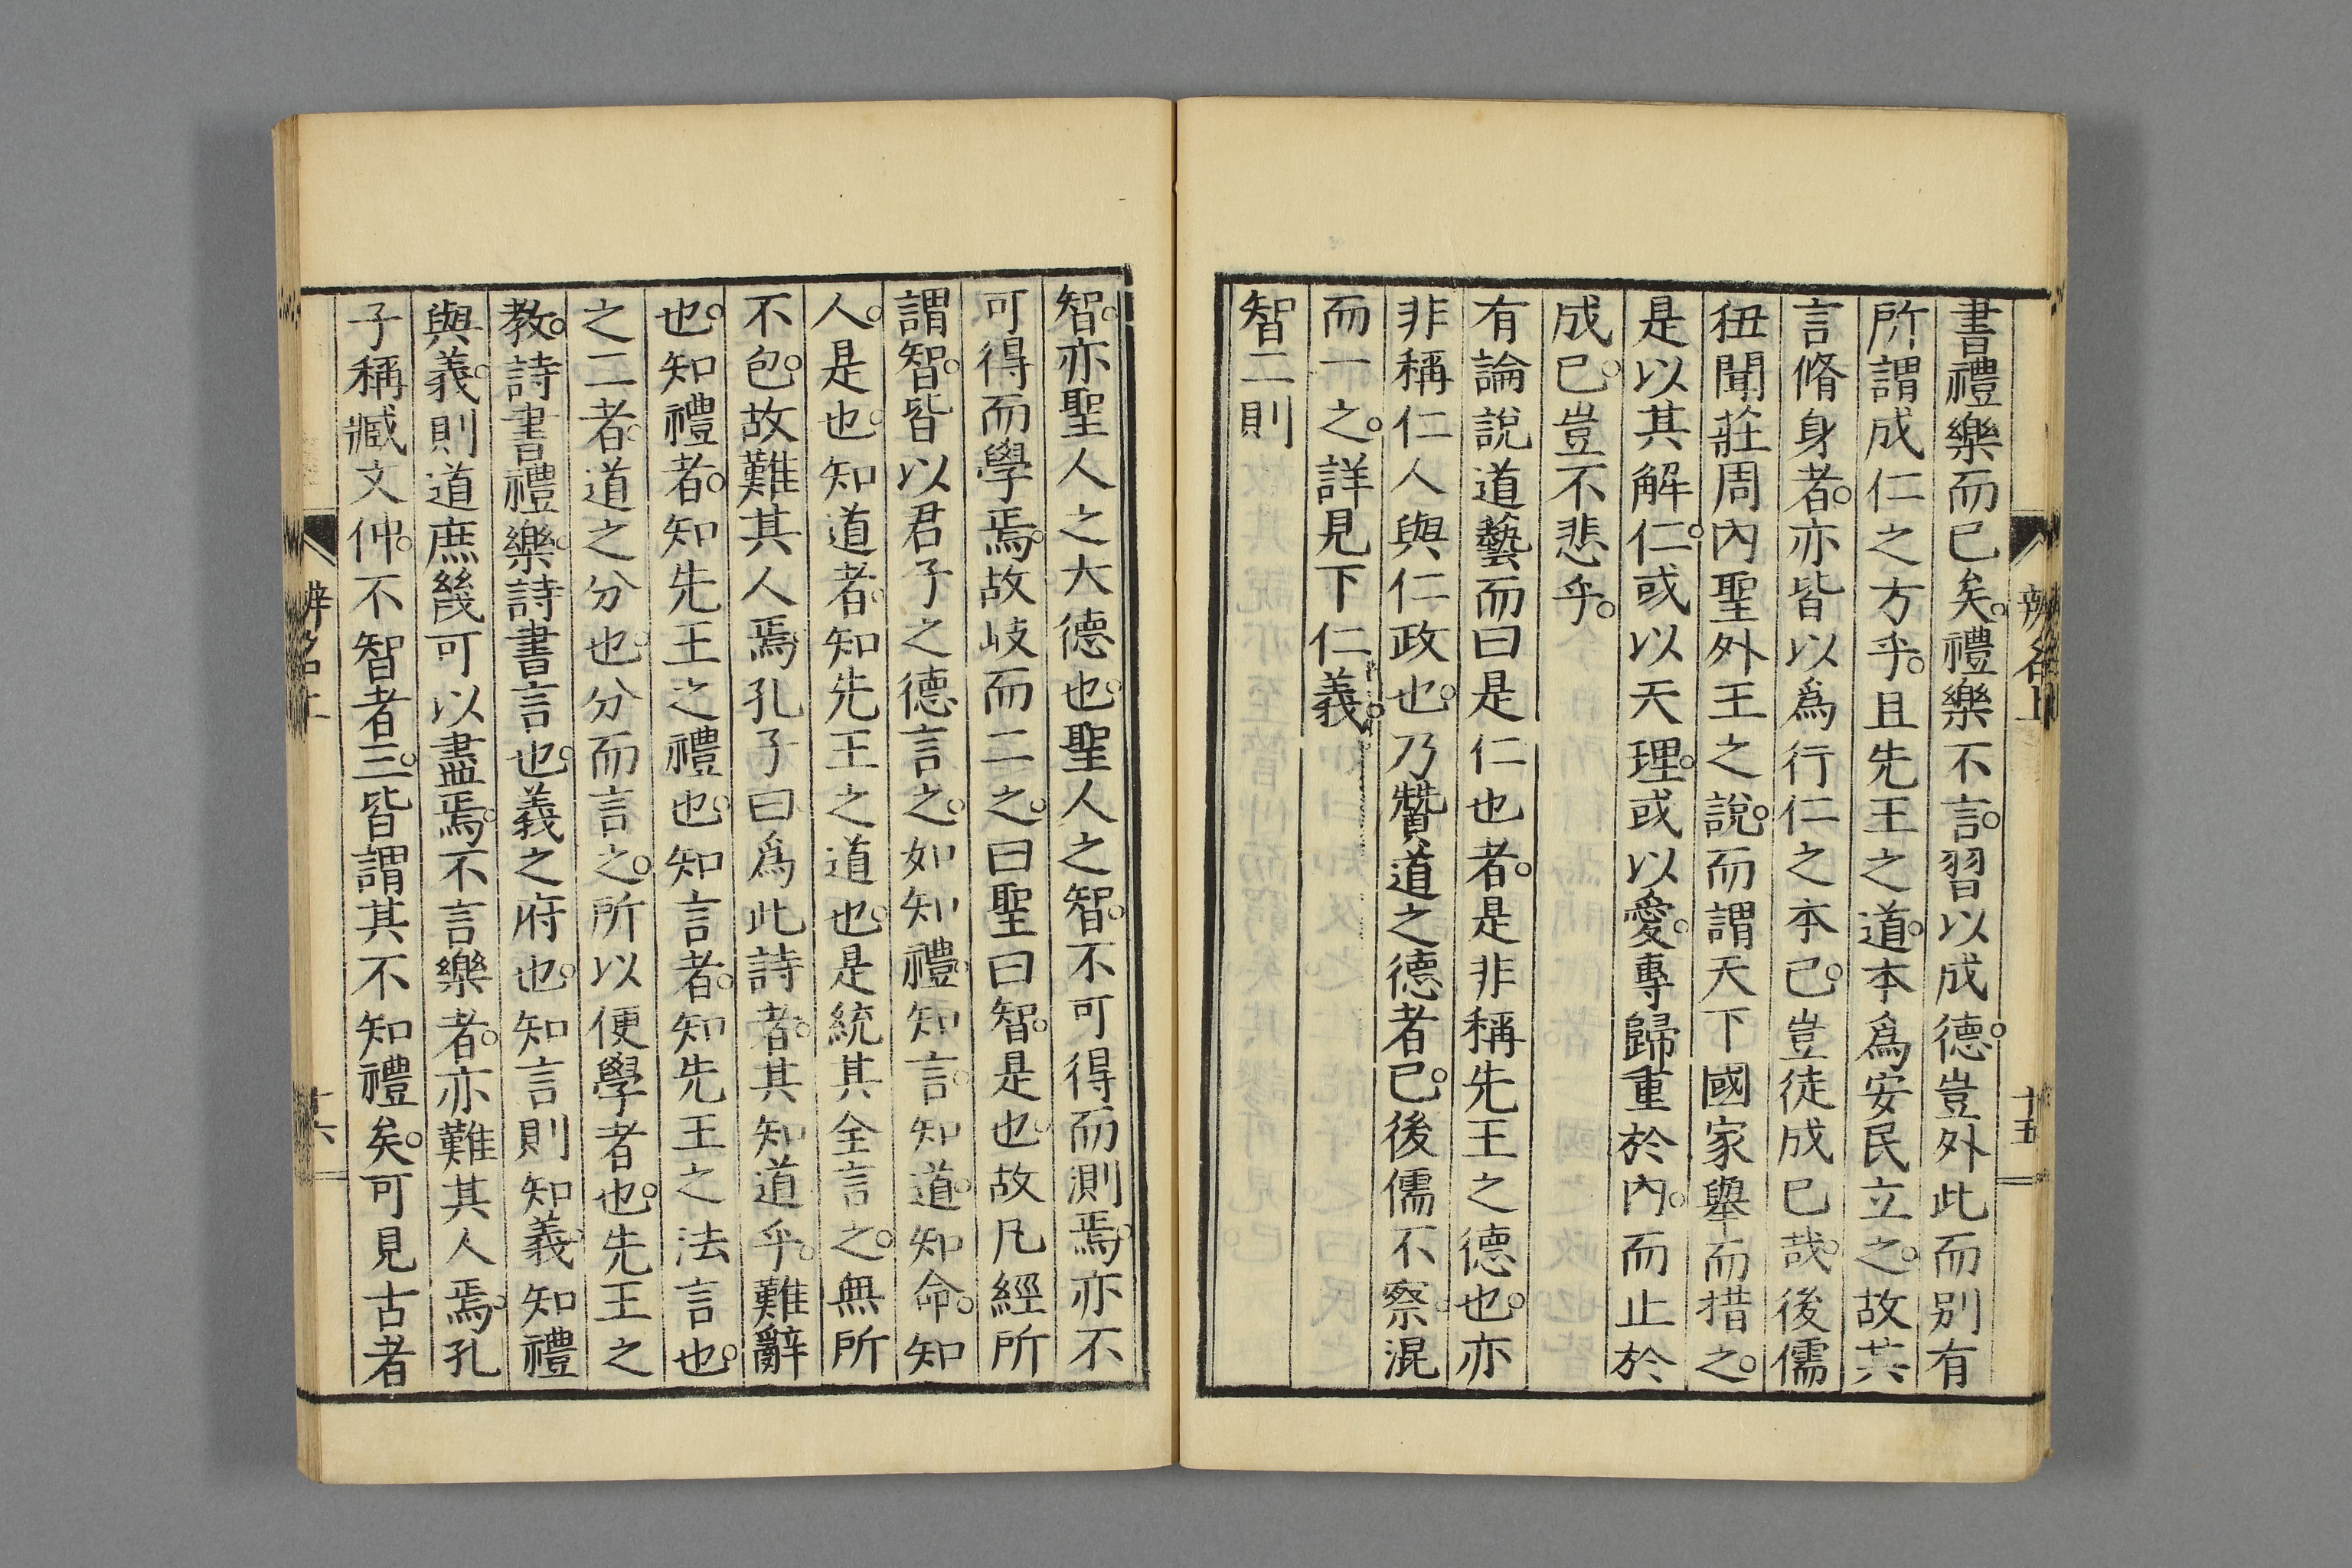 書禮樂而已矣。禮樂不言。習以成德。豈外此而別有
所謂成仁之方乎。且先王之道。本爲安民立之。故其
言脩身者。亦皆以爲行仁之本已。豈徒成已哉。後儒
狃聞莊周內聖外王之說。而謂天下國家舉而措之。
是以其解仁。或以天理。或以愛。專歸重於內。而止於
成已。豈不悲乎。
有論說道藝而曰是仁也者。是非稱先王之德也。亦
非稱仁人與仁政也。乃贊道之德者已。後儒不察混
而一之。詳見下仁義。
智二則
辨名上
十五
智。亦聖人之大德也。聖人之智。不可得而測焉。亦不
可得而學焉。故岐而二之。曰聖曰智。是也。故凡經所
謂智。皆以君子之德言之。如知禮。知言。知道。知命。知
人。是也。知道者。知先王之道也。是統其全言之。無所
不包。故難其人焉。孔子曰爲此詩者。其知道乎。難辭
也。知禮者。知先王之禮也。知言者。知先王之法言也。
之二者。道之分也。分而言之。所以便學者也。先王之
教。詩書禮樂。詩書言也。義之府也。知言則知義。知禮
與義。則道庶幾可以盡焉。不言樂者。亦難其人焉。孔
子稱臧文仲。不智者三。皆謂其不知禮矣。可見古者
辨名上
十六